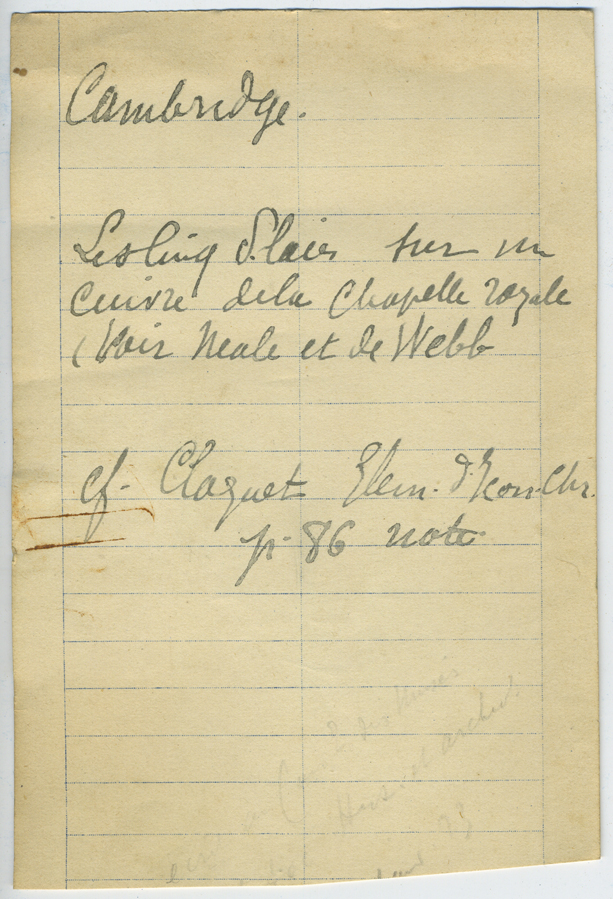 Cambridge.
Les cinq Plaies sur un
cuivre dela Chapelle royale
(Voir Neale et de Webb
cf. Cloquet Elem. d'Icon. Chr.
p. 86 note
Hist. et archéol.